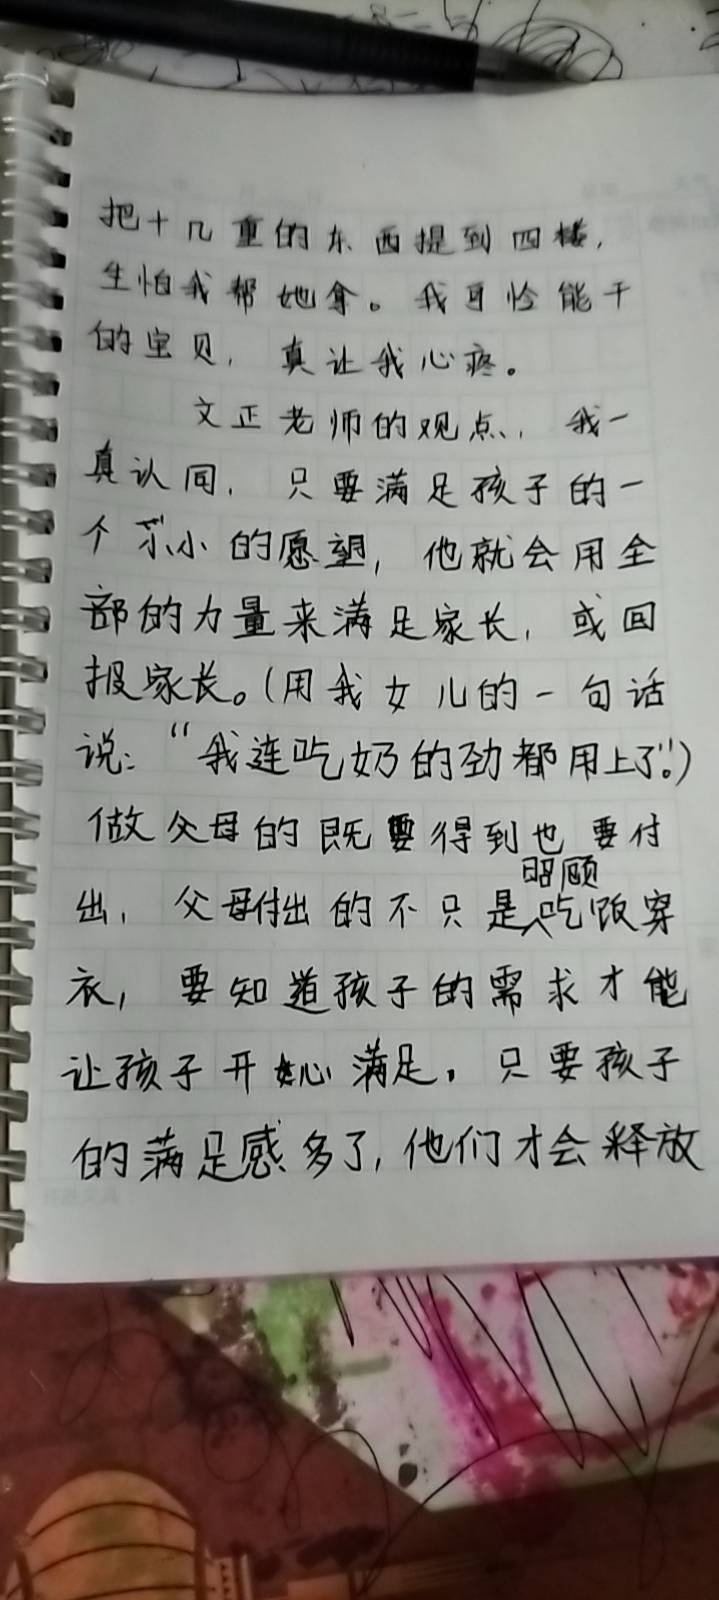 把十几重的东西提到四楼，
生怕我帮她拿。我可怜能干
的宝贝，真让我心疼。
文正老师的观点，我一
真认同，只要满足孩子的一
个小小的愿望，他就会用全
部的力量来满足家长，或回
报家长。(用我女儿的一句话
说：“我连吃奶的劲都用上了”。)
做父母的既要得到也要付
出，父母付出的不只是照顾吃饭穿
衣，要知道孩子的需求才能
让孩子开心满足。只要孩子
的满足感多了，他们才会释放